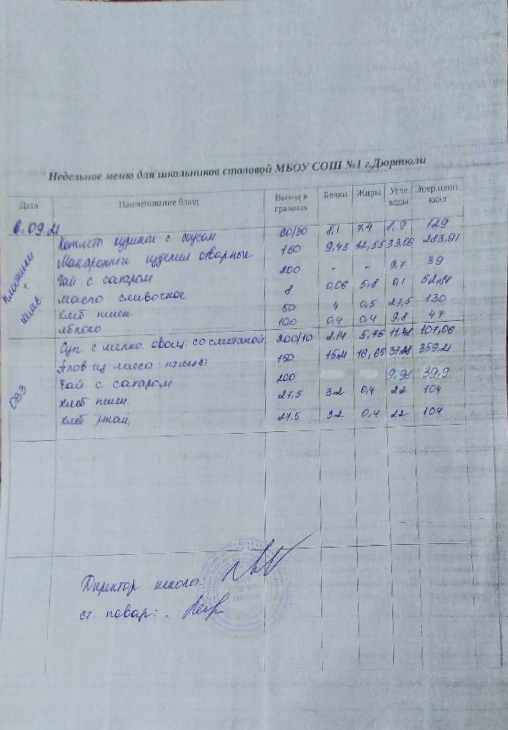 Недельное меню для школьников столовой МБОУ СОШ №1 г.Дюртюли
Дата Наименование блюд Выход в граммах Белки Жиры Угле воды Энер.ценн. ккал
6.09.21
Котлета куриные с соусом 8,1 7,4 8,9 129
Макаронные изделия отварные 9,43 33,06 283,91
Чай с сахаром 200 - - 9,7 39
масло сливочное 8 0,06 5,8 0,1
хлеб пшен 50 4 0,5 27,5 130
яблоко 100 0,4 0,4 9,8 47
Суп с мелко. овощ. со сметаной 200/10 2,14 5,76 17,48 107,06
Плов из мяса птицы 150 359,21
Чай с сахаром 200 9,98 39,9
хлеб пшен 27,5 3,2 0,4 22 104
хлеб ржай, 27,5 3,2 0,4 22 104
ОВЗ
Директор школы:
ст. повар: